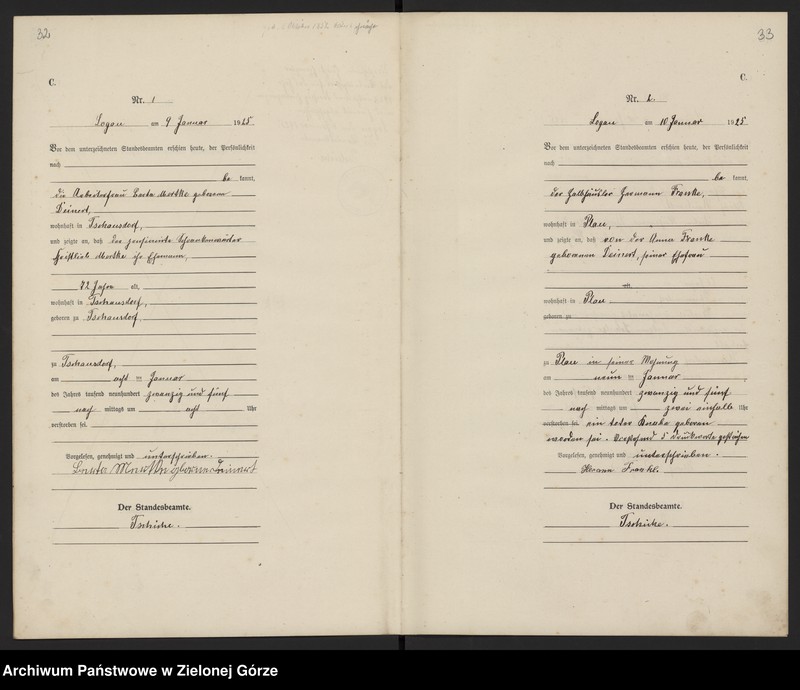 32
C.
Nr. 1
Logau am 9 Januar 1925
Vor dem unterzeichneten Standesbeamten erschien heute, der Persönlichkeit
nach
be kannt,
die Arbeiterfrau Berta Mortke geborene
Deinert,
wohnhaft in Tschausdorf,
und zeigte an, daß der pensionierte Schrankenwärter
Gottlieb Mortke ihr Ehemann,
72 Jahre alt,
wohnhaft in Tschausdorf,
geboren zu Tschausdorf,
zu Tschausdorf,
am acht ten Januar
des Jahres tausend neunhundert zwanzig und fünf
nach mittags um acht Uhr
verstorben sei.
Vorgelesen, genehmigt und unterschrieben.
Berta Mortke geborene Deinert
Der Standesbeamte.
Tschicke.
33
C.
Nr. 2
Logau am 10 Januar 1925
Vor dem unterzeichneten Standesbeamten erschien heute, der Persönlichkeit
nach
be kannt,
der Halbhäusler Hermann Franke,
wohnhaft in Plau,
und zeigte an, daß von der Anna Franke
geborenen Deinert, seiner Ehefrau
alt,
wohnhaft in Plau
geboren zu
zu Plau in seiner Wohnung
am neun ten Januar
des Jahres tausend neunhundert zwanzig und fünf
nach mittags um zwei einhalb Uhr
verstorben sei. ein toter Knabe geboren
worden sei. Vorstehend 5 Druckworte gestrichen
Vorgelesen, genehmigt und unterschrieben.
Hermann Franke.
Der Standesbeamte.
Tschicke.
Archiwum Państwowe w Zielonej Górze